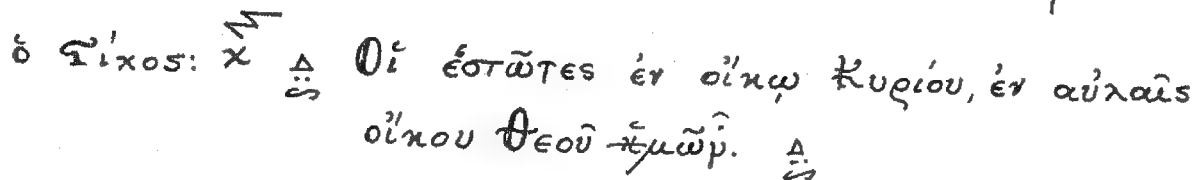 ὁ Στίχος: Δι Οἱ ἑστῶτες ἐν οἴκῳ Κυρίου, ἐν αὐλαῖς
οἴκου Θεοῦ ἡμῶν. Δι